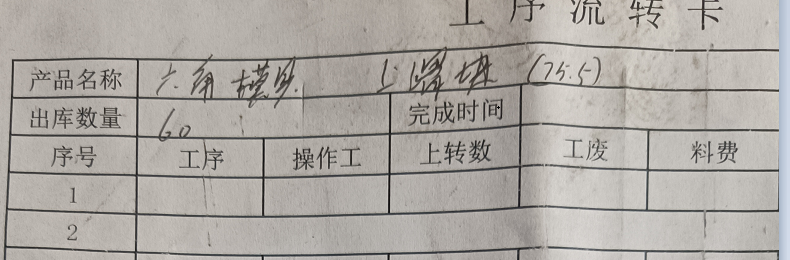 工序流转卡
产品名称 六角模具 上 (75.5)
出库数量 60 完成时间
序号 工序 操作工 上转数 工废 料费
1
2